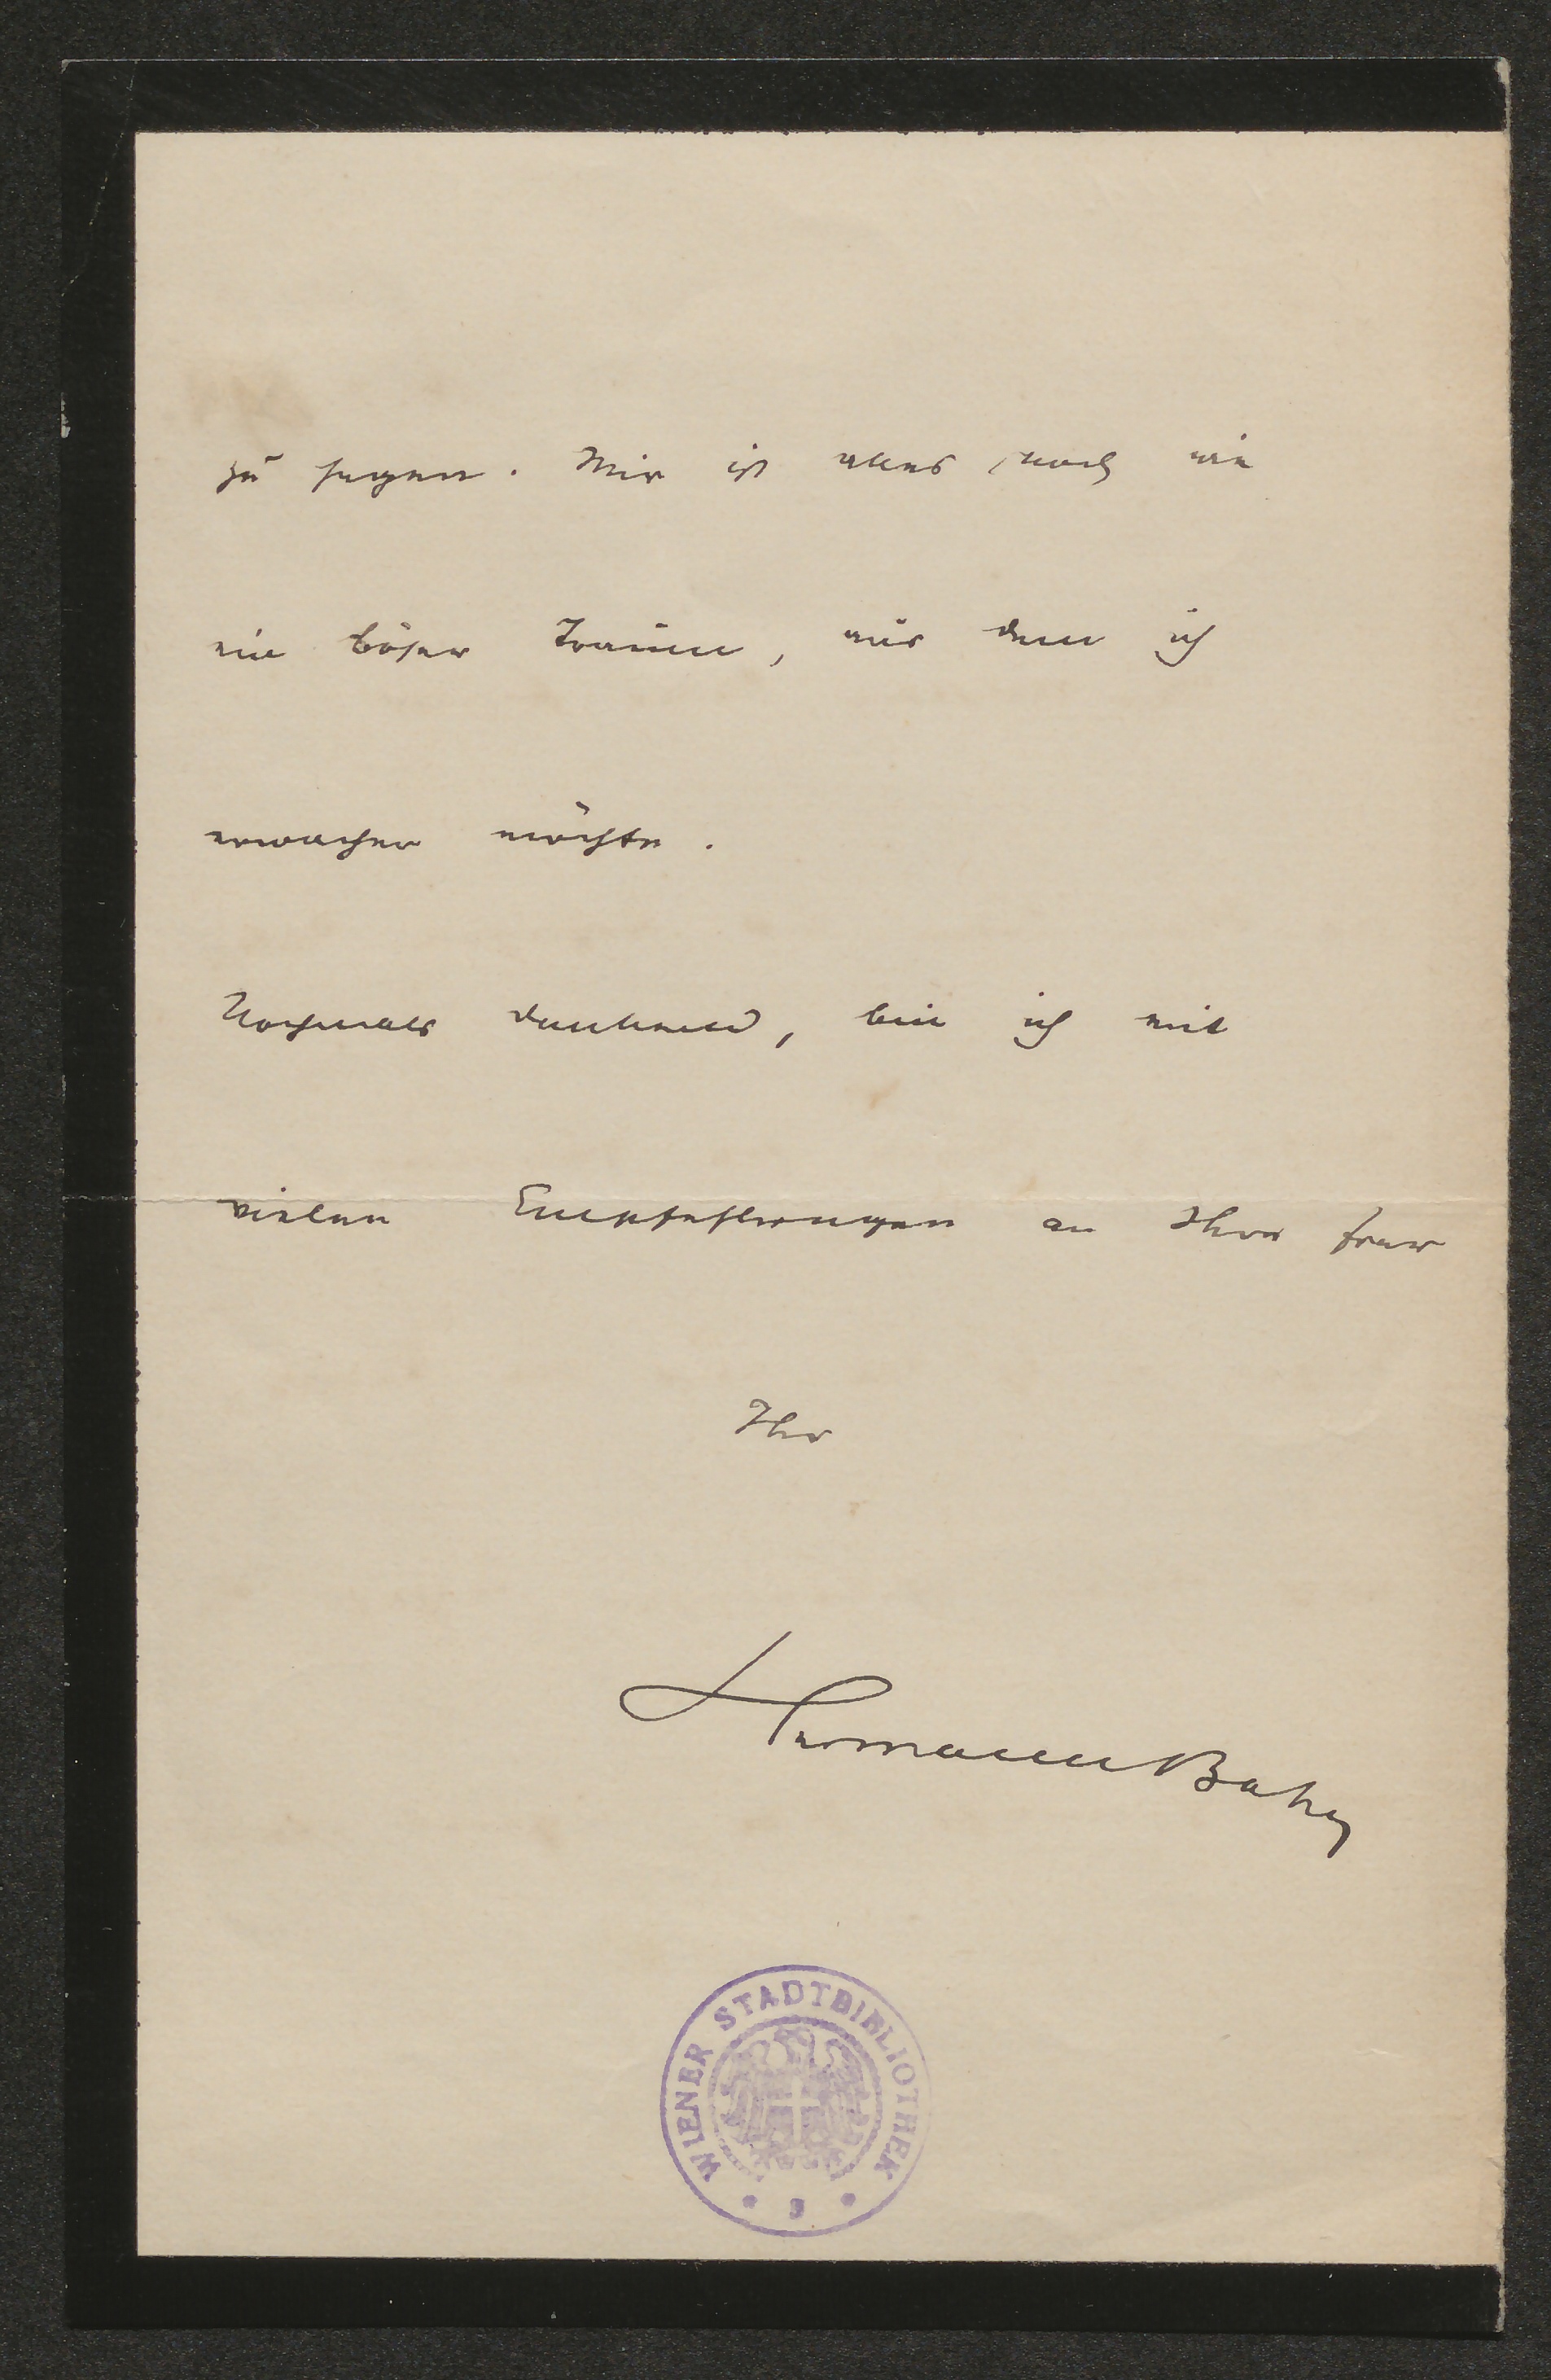 zu sagen. Mir ist alles noch wie
ein böser Traum, aus dem ich
erwachen möchte.
Nochmals dankend, bin ich mit
vielen Empfehlungen an Ihre Frau
Ihr
Hermann Bahr
WIENER STADTBIBLIOTHEK